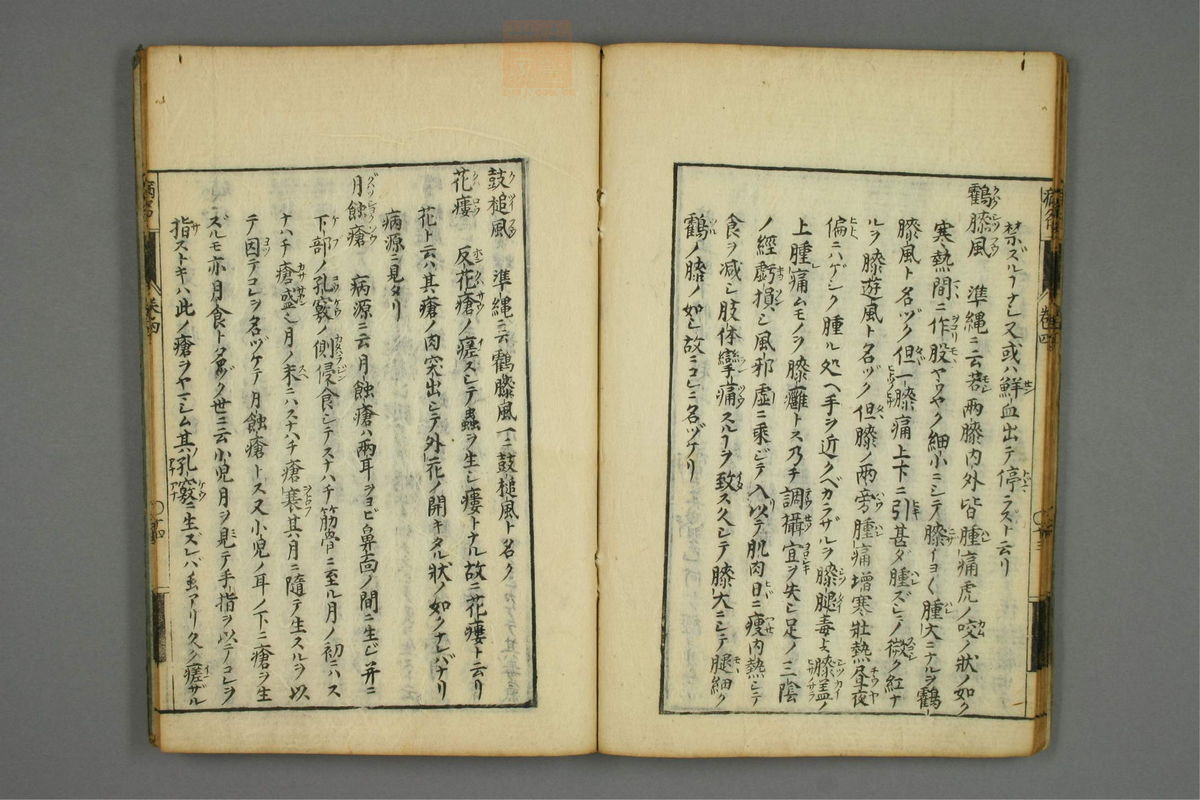 禁ズルフナシ又或ハ鮮血出テ停ラストムリ
鶴膝風 準縄ニ云若両膝内外皆腫痛虎ノ咬ノ状ノ如ク
寒熱間ニ作股ヤウヤク細小ニシテ膝イヨ〱腫大ニナルヲ鶴
膝風ト名ヅク但一膝痛上下ニ引甚ダ腫ズシテ微ク紅ナ
ルヲ膝遊風ト名ヅク但膝ノ両旁腫痛増寒壮熱昼夜
偏ニハゲシク腫ル処ヘ手ヲ近クベカラザルヲ膝眼毒ト膝蓋ノ
上腫痛ムモノヲ膝癰トス乃チ調攝宜ヲ失シ足ノ三陰
ノ經虧損シ風邪虚ニ乗ジテ入以テ肌肉日ニ痩内熱シテ
食ヲ減シ肢体攣痛スルヿヲ致ス久シテ膝大ニシテ腿細ク
鶴ノ膝ノ如シ故ニコレニ名ヅケリ
鼓槌風 準縄ニ云鶴膝風一ニ鼓槌風ト名ク
花瘻 反花瘡ノ瘥スシテ蟲ヲ生シ瘻トナル故ニ花瘻ト云リ
花ト云ハ其瘡ノ肉突出シテ外花ノ開キタル状ノ如クナレバナリ
病源ニ見タリ
月蝕瘡 病源ニ云月蝕瘡ハ両耳ヲヨビ鼻面ノ間ニ生ジ并ニ
下部ノ孔竅ノ側侵食シテスナハチ筋骨ニ至ル月ノ初ニハス
ナハチ瘡盛シ月ノ末ニハスナハチ瘡衰其月ニ隨テ生スルヲ以
テ因テコレヲ名ヅケテ月蝕瘡トス又小児ノ耳ノ下ニ瘡ヲ生
ズルモ亦月食ト名ヅク世ニ云小児月ヲ見テ手指ヲ以テコレヲ
指ストキハ此ノ瘡ヲヤマシム其孔竅ニ生ズレバ虫アリ久ク瘥ザル